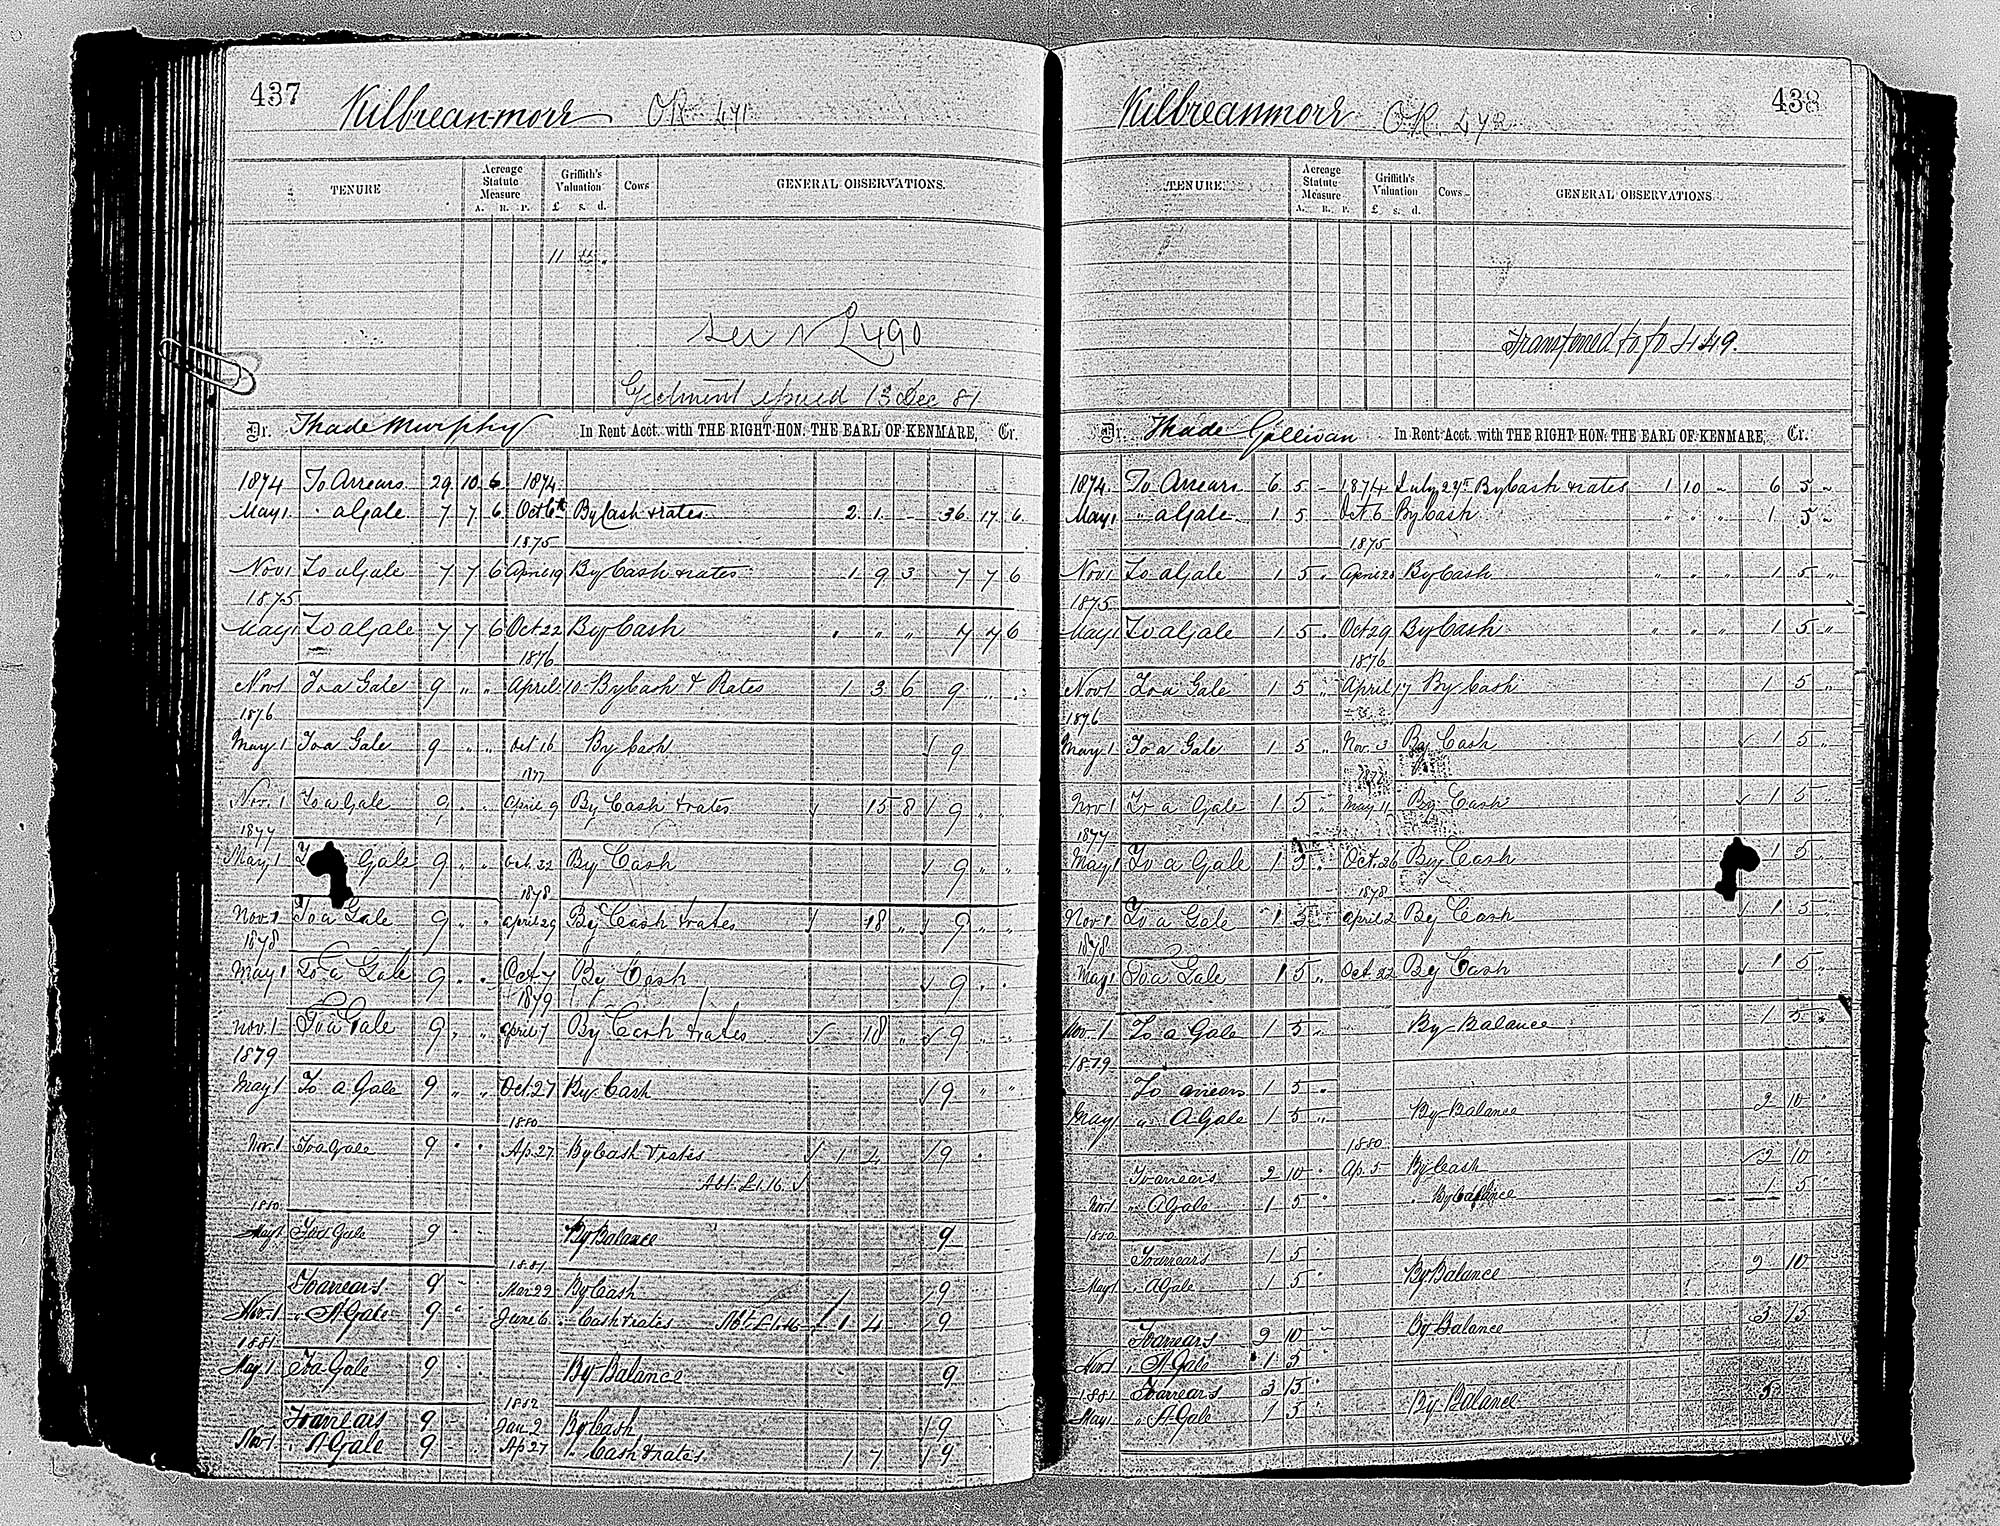 437
Kilbreanmore OR 471
TENURE Acreage Statute Measure A. R. P. Griffith's Valuation £ s. d. Cows GENERAL OBSERVATIONS.
11
L490
Ejectment issued 13 Dec 81
Dr. Thade Murphy In Rent Acct. with THE RIGHT HON. THE EARL OF KENMARE, Cr.
1874 To Arrears 29 10 6 1874
May 1 " a Gale 7 7 6 Oct 6th By Cash & rates 2 1 - 36 17 6
1875
Nov 1 To a Gale 7 7 6 April 19 By Cash & rates 1 9 3 7 7 6
1875
May 1 To a Gale 7 7 6 Oct 22 By Cash " " " 7 7 6
1876
Nov 1 To a Gale 9 " " April 10 By Cash & Rates 1 3 6 9 " "
1876
May 1 To a Gale 9 " " Oct 16 By Cash √ 9
1877
Nov. 1 To a Gale 9 " " April 9 By Cash & rates √ 15 8 √ 9 " "
1877
May 1 Gale 9 " " Oct. 22 By Cash √ 9 " "
1878
Nov. 1 To a Gale 9 " " April 29 By Cash & rates √ 18 " √ 9 " "
1878
May 1 To a Gale 9 " " Oct 7 By Cash √ 9 " "
1879
Nov. 1 To a Gale 9 " " April 7 By Cash & rates √ 18 " √ 9 " "
1879
May 1 To a Gale 9 " " Oct. 27 By Cash √ 9 " "
1880
Nov. 1 To a Gale 9 " " Ap 27 By Cash & rates √ 1 4 √ 9 "
Abt. £1.16 √
1880
May 1 To a Gale 9 By Balance 9
1881
To arrears 9 Mar 22 By Cash √ 9
Nov. 1 " A Gale 9 " June 6 " Cash & rates Abt. £1.16 √ 1 4 √ 9
1881
May 1 To a Gale 9 By Balance 9
1882
To arrears 9 Jan. 2 By Cash √ 9
Nov 1 " A Gale 9 Ap 27 " Cash & rates 1 7 √ 9
438
Kilbreanmore OR 472
TENURE Acreage Statute Measure A. R. P. Griffith's Valuation £ s. d. Cows GENERAL OBSERVATIONS.
Transferred to fo 449.
Dr. Thade Sullivan In Rent Acct. with THE RIGHT HON. THE EARL OF KENMARE, Cr.
1874 To Arrears 6 5 - 1874 July 27th By Cash & rates 1 10 - 6 5 "
May 1 " a Gale 1 5 Oct 6 By Cash " " " 1 5 "
1875
Nov 1 To a Gale 1 5 " April 20 By Cash " " " 1 5 "
1875
May 1 To a Gale 1 5 " Oct 29 By Cash " " " 1 5 "
1876
Nov 1 To a Gale 1 5 " April 17 By Cash 1 5 "
1876
May 1 To a Gale 1 5 " Nov. 3 By Cash √ 1 5 "
1877
Nov 1 To a Gale 1 5 " May 11 By Cash √ 1 5 "
1877
May 1 To a Gale 1 5 " Oct. 26 By Cash 1 5
1878
Nov 1 To a Gale 1 5 " April 2 By Cash √ 1 5 "
1878
May 1 To a Gale 1 5 " Oct. 22 By Cash √ 1 5 "
Nov. 1 To a Gale 1 5 " By Balance 1 5 "
1879
To arrears 1 5 "
May 1 " A Gale 1 5 " By Balance 2 10 "
1880
To arrears 2 10 " Ap. 5 By Cash √ 2 10 "
Nov. 1 " A Gale 1 5 " " By Balance 1 5 "
1880
To arrears 1 5 "
May 1 " A Gale 1 5 " By Balance 2 10
To arrears 2 10 - By Balance 3 15
Nov 1 " A Gale 1 5
1881 To arrears 3 15 "
May 1 " A Gale 1 5 " By Balance 5